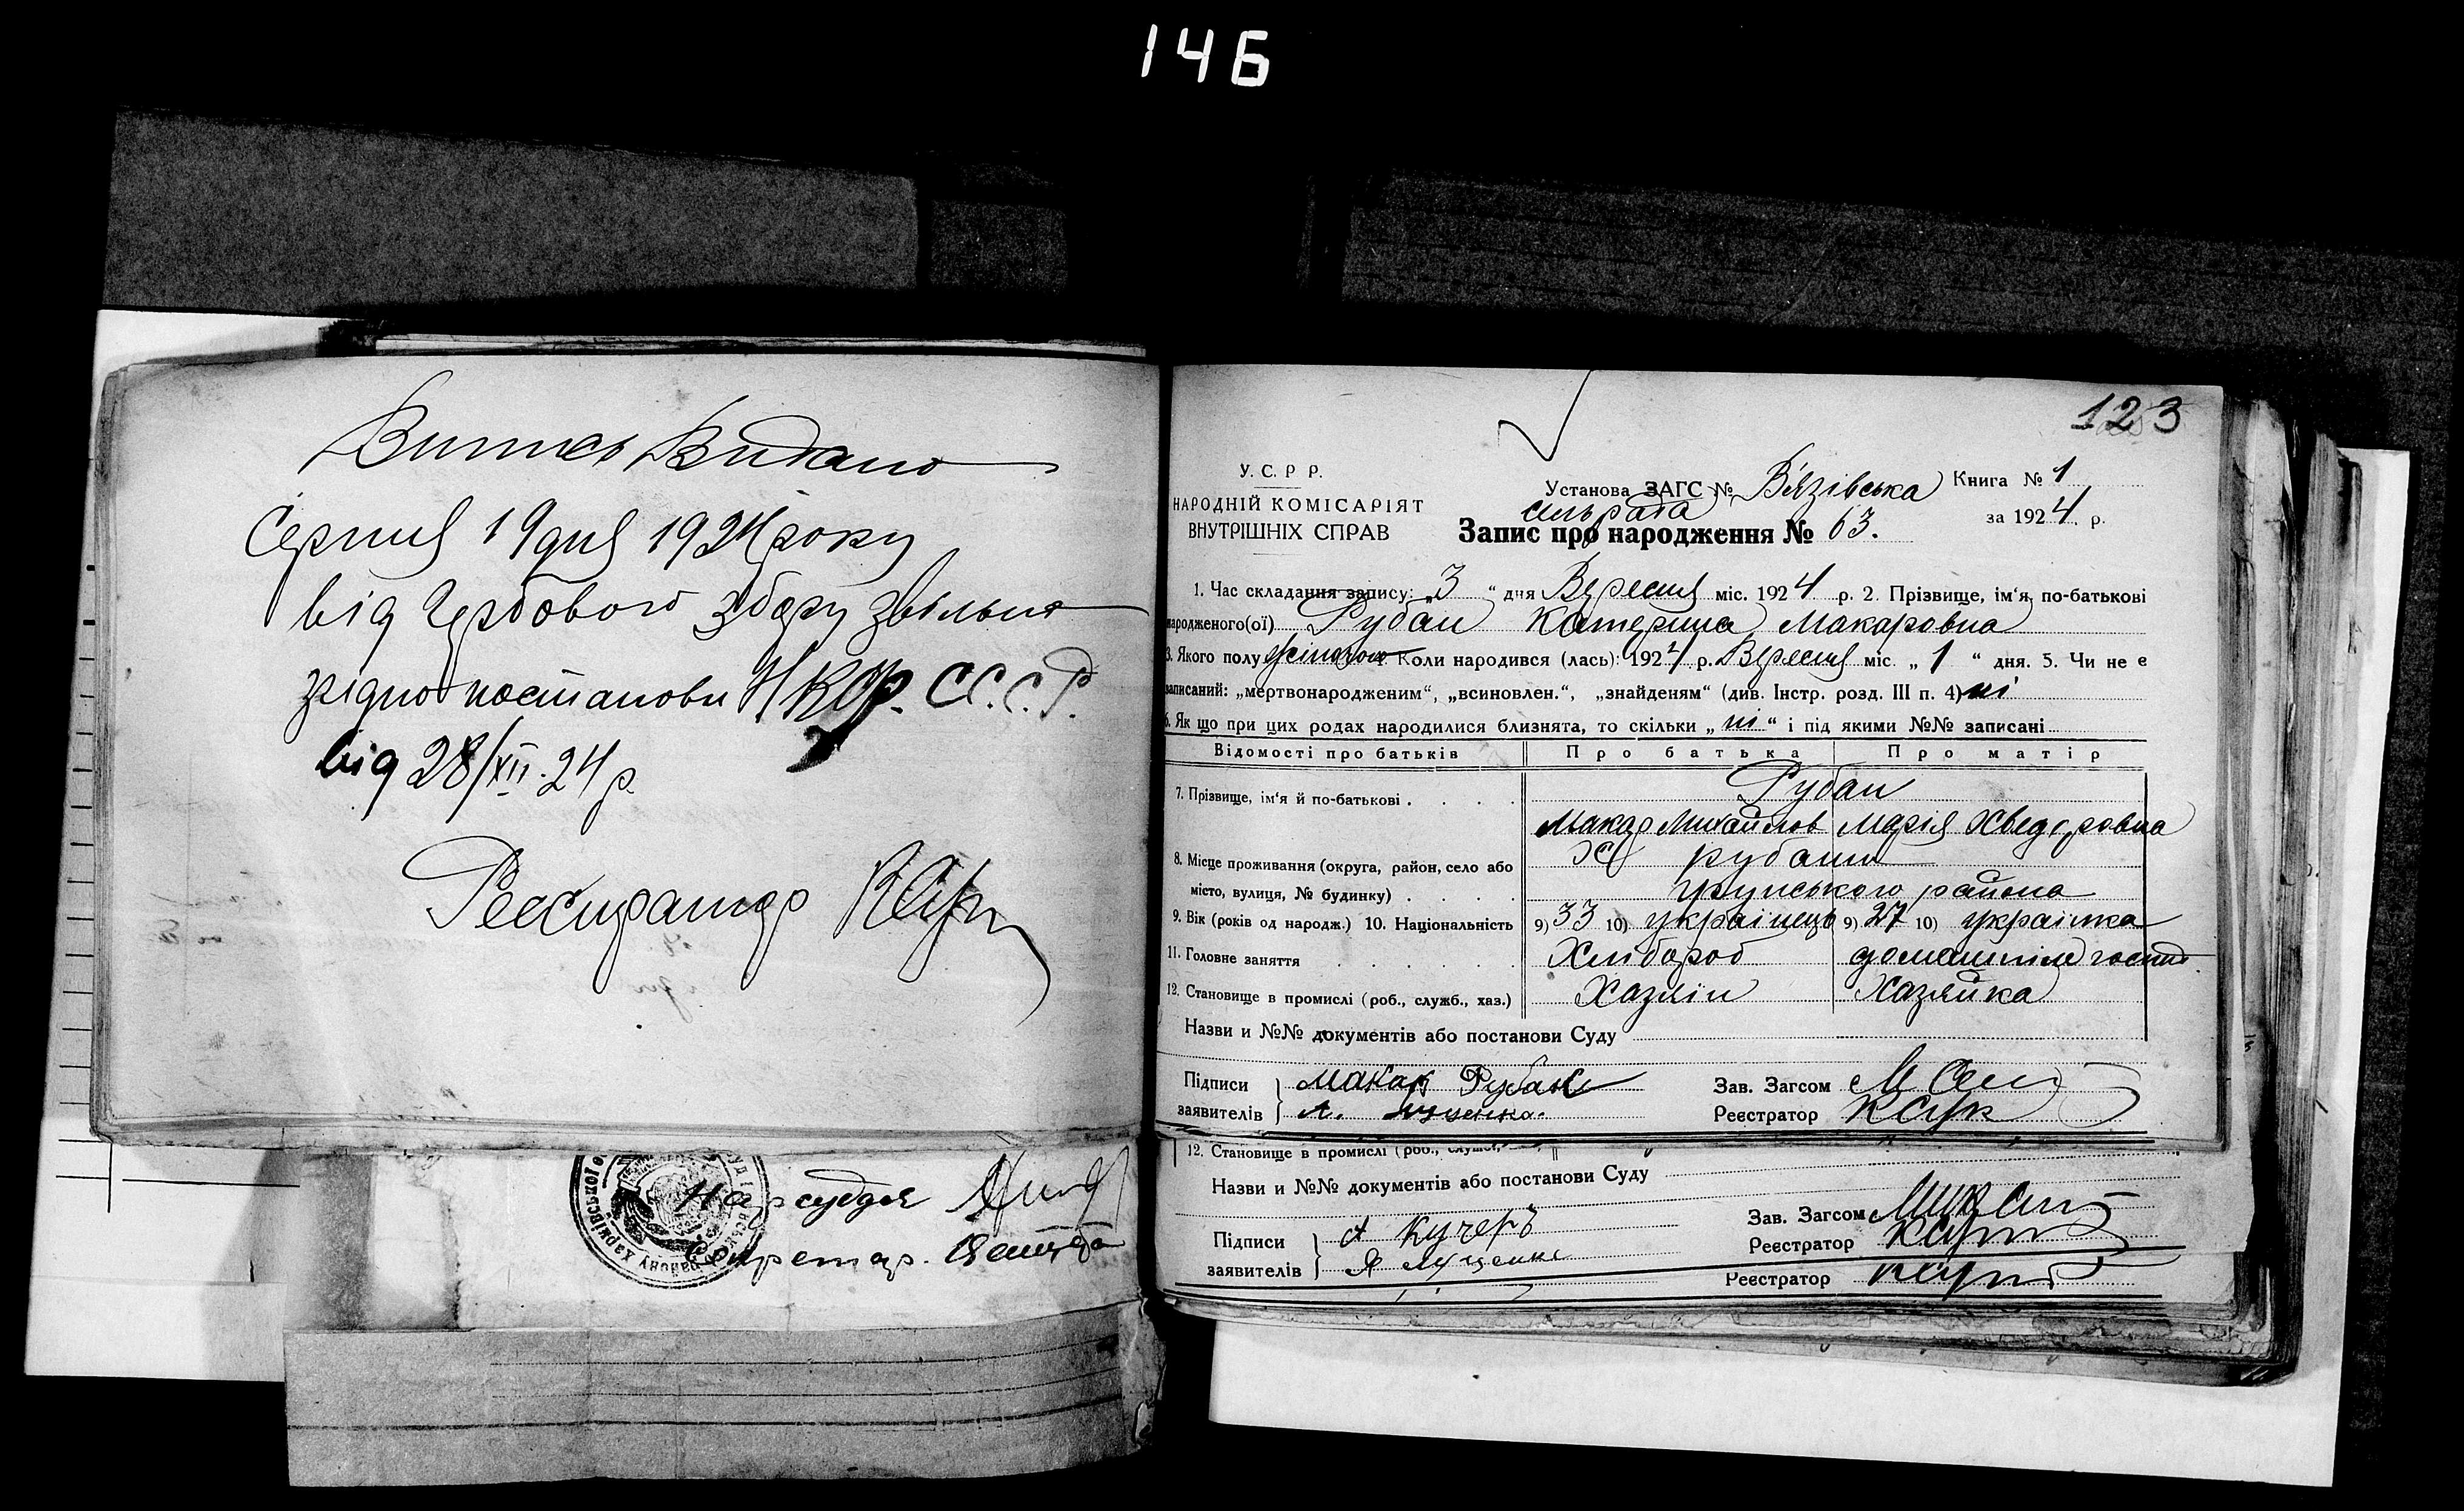 146
Випись Видано
Серпня 19 дня 1924 року
від Гербового збору звільнено
згідно постанови НКФ. С.С.С.Р.
від 28/XII-24 р.
Реєстратор
Нарсуддя
Секретар.
123
У. С. Р. Р.
НАРОДНІЙ КОМІСАРІЯТ
ВНУТРІШНІХ СПРАВ
Установа ЗАГС № Вязівська Книга № 1
сильрада за 1924 р.
Запис про народження № 63.
1. Час складання запису: „3“ дня Вересня міс. 1924 р. 2. Прізвище, ім'я, по-батькові
народженого(ої) Рубан Катерина Макаровна
3. Якого полу жіночого Коли народився (лась): 1924 р. Вересня міс. „1“ дня. 5. Чи не є
записаний: „мертвонародженим“, „всиновлен.“, „знайденям“ (див. Інстр. розд. III п. 4) ні
6. Як що при цих родах народилися близнята, то скільки „ні“ і під якими №№ записані
Відомості про батьків Про батька Про матір
7. Прізвище, ім'я й по-батькові . . . . Рубан
Макар Михайлов Марія Хведоровна
8. Місце проживання (округа, район, село або Х. Рубани
місто, вулиця, № будинку) . . . . Грунського района
9. Вік (років од народж.) 10. Національність 9) 33 10) українець 9) 27 10) українка
11. Головне заняття . . . . . Хлібороб домашнє господ.
12. Становище в промислі (роб., служб., хаз.) Хазяїн Хазяйка
Назви и №№ документів або постанови Суду
Підписи Макар Рубан Зав. Загсом
заявителів Я. Луценко. Реєстратор
12. Становище в промислі (роб., служб.,
Назви и №№ документів або постанови Суду
Підписи А Кучеръ Зав. Загсом
заявителів Я Луценко Реєстратор
Реєстратор